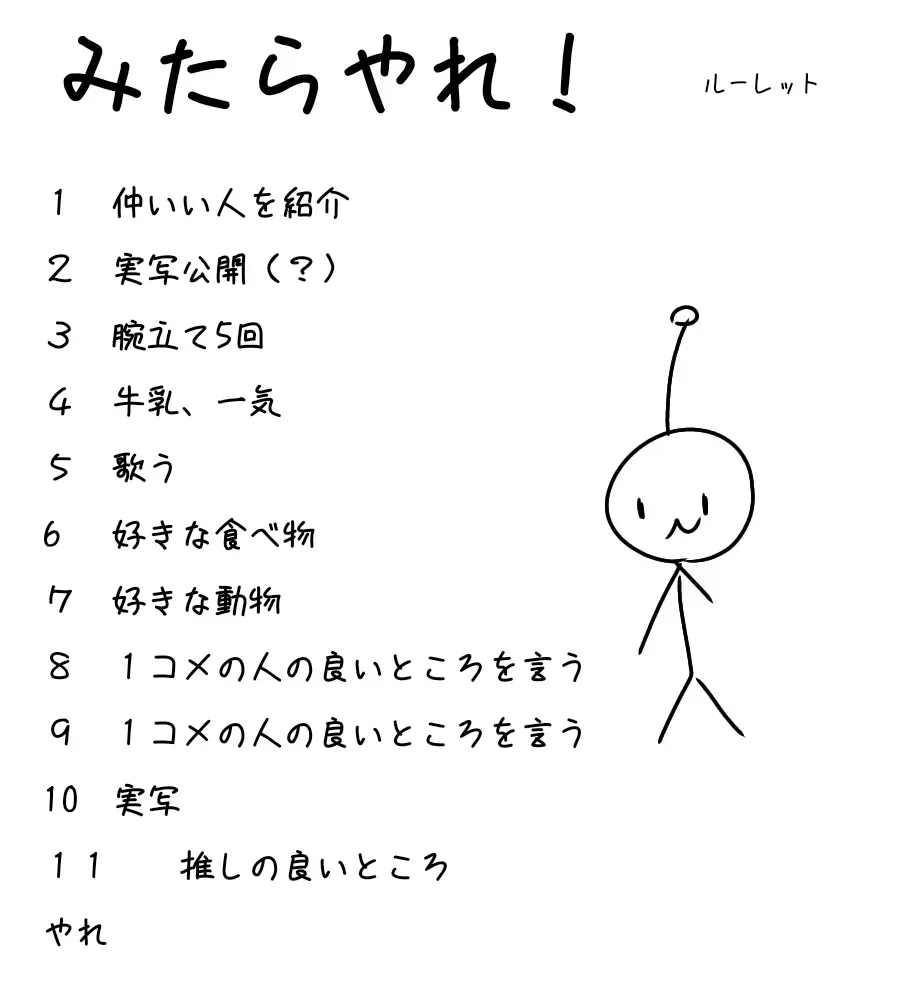 みたらやれ！
ルーレット
1 仲いい人を紹介
2 実写公開（？）
3 腕立て5回
4 牛乳、一気
5 歌う
6 好きな食べ物
7 好きな動物
8 １コメの人の良いところを言う
9 １コメの人の良いところを言う
10 実写
１１　推しの良いところ
やれ